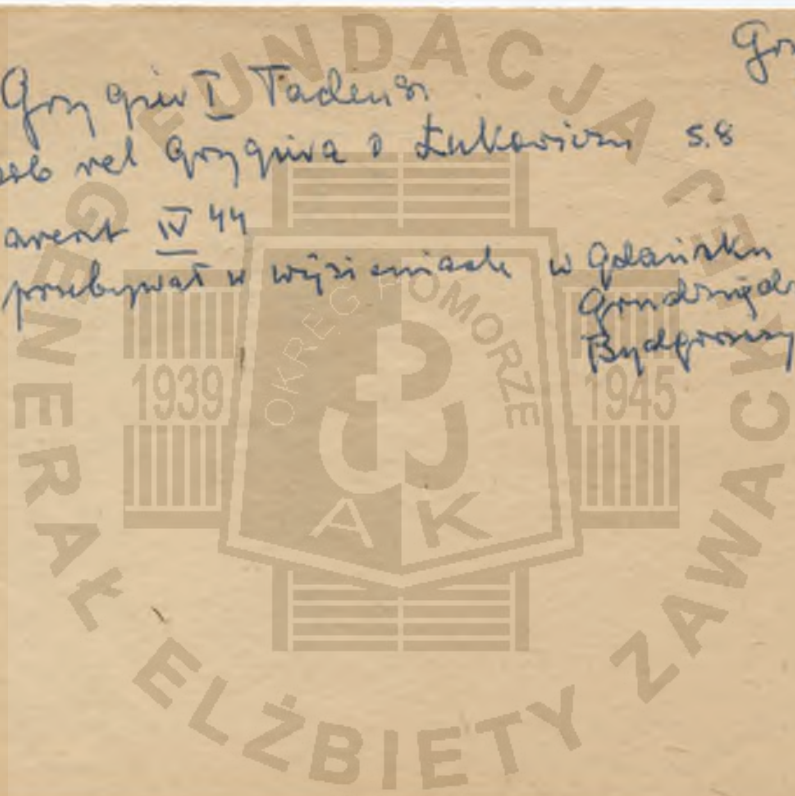 Grz
Grzygier I Tadeusz
rel Grzygiera o Łukowiczu s.8
arest IV 44
przebywał w więzieniach w Gdańsku
Grudziądz
Bydgoszcz
FUNDACJA
GENERAŁ ELŻBIETY ZAWACKIEJ
OKRĘG POMORZE
1939
1945
A K